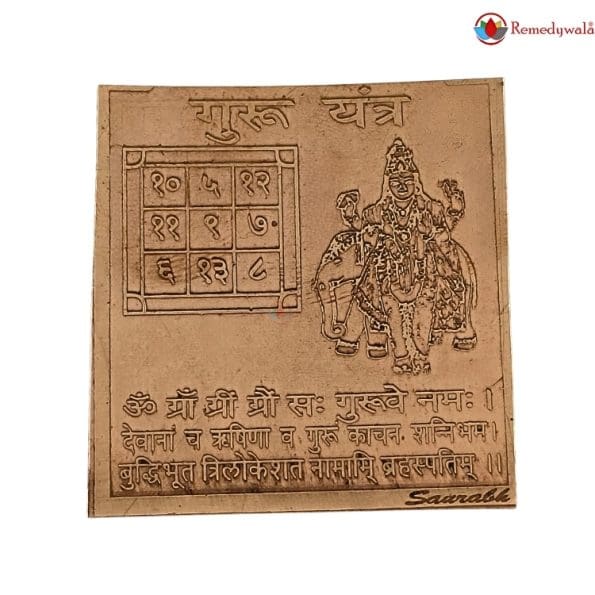 Remedywala
गुरू यंत्र
१० ५ १२
११ ९ ७
६ १३ ८
ॐ ग्राँ ग्रीं ग्रौं सः गुरूवे नमः ।
देवानां च ऋषिणा व गुरू काचन शन्निभम।
बुद्धिभूत त्रिलोकेशतं नामामि् ब्रहस्पतिम् ।।
Saurabh